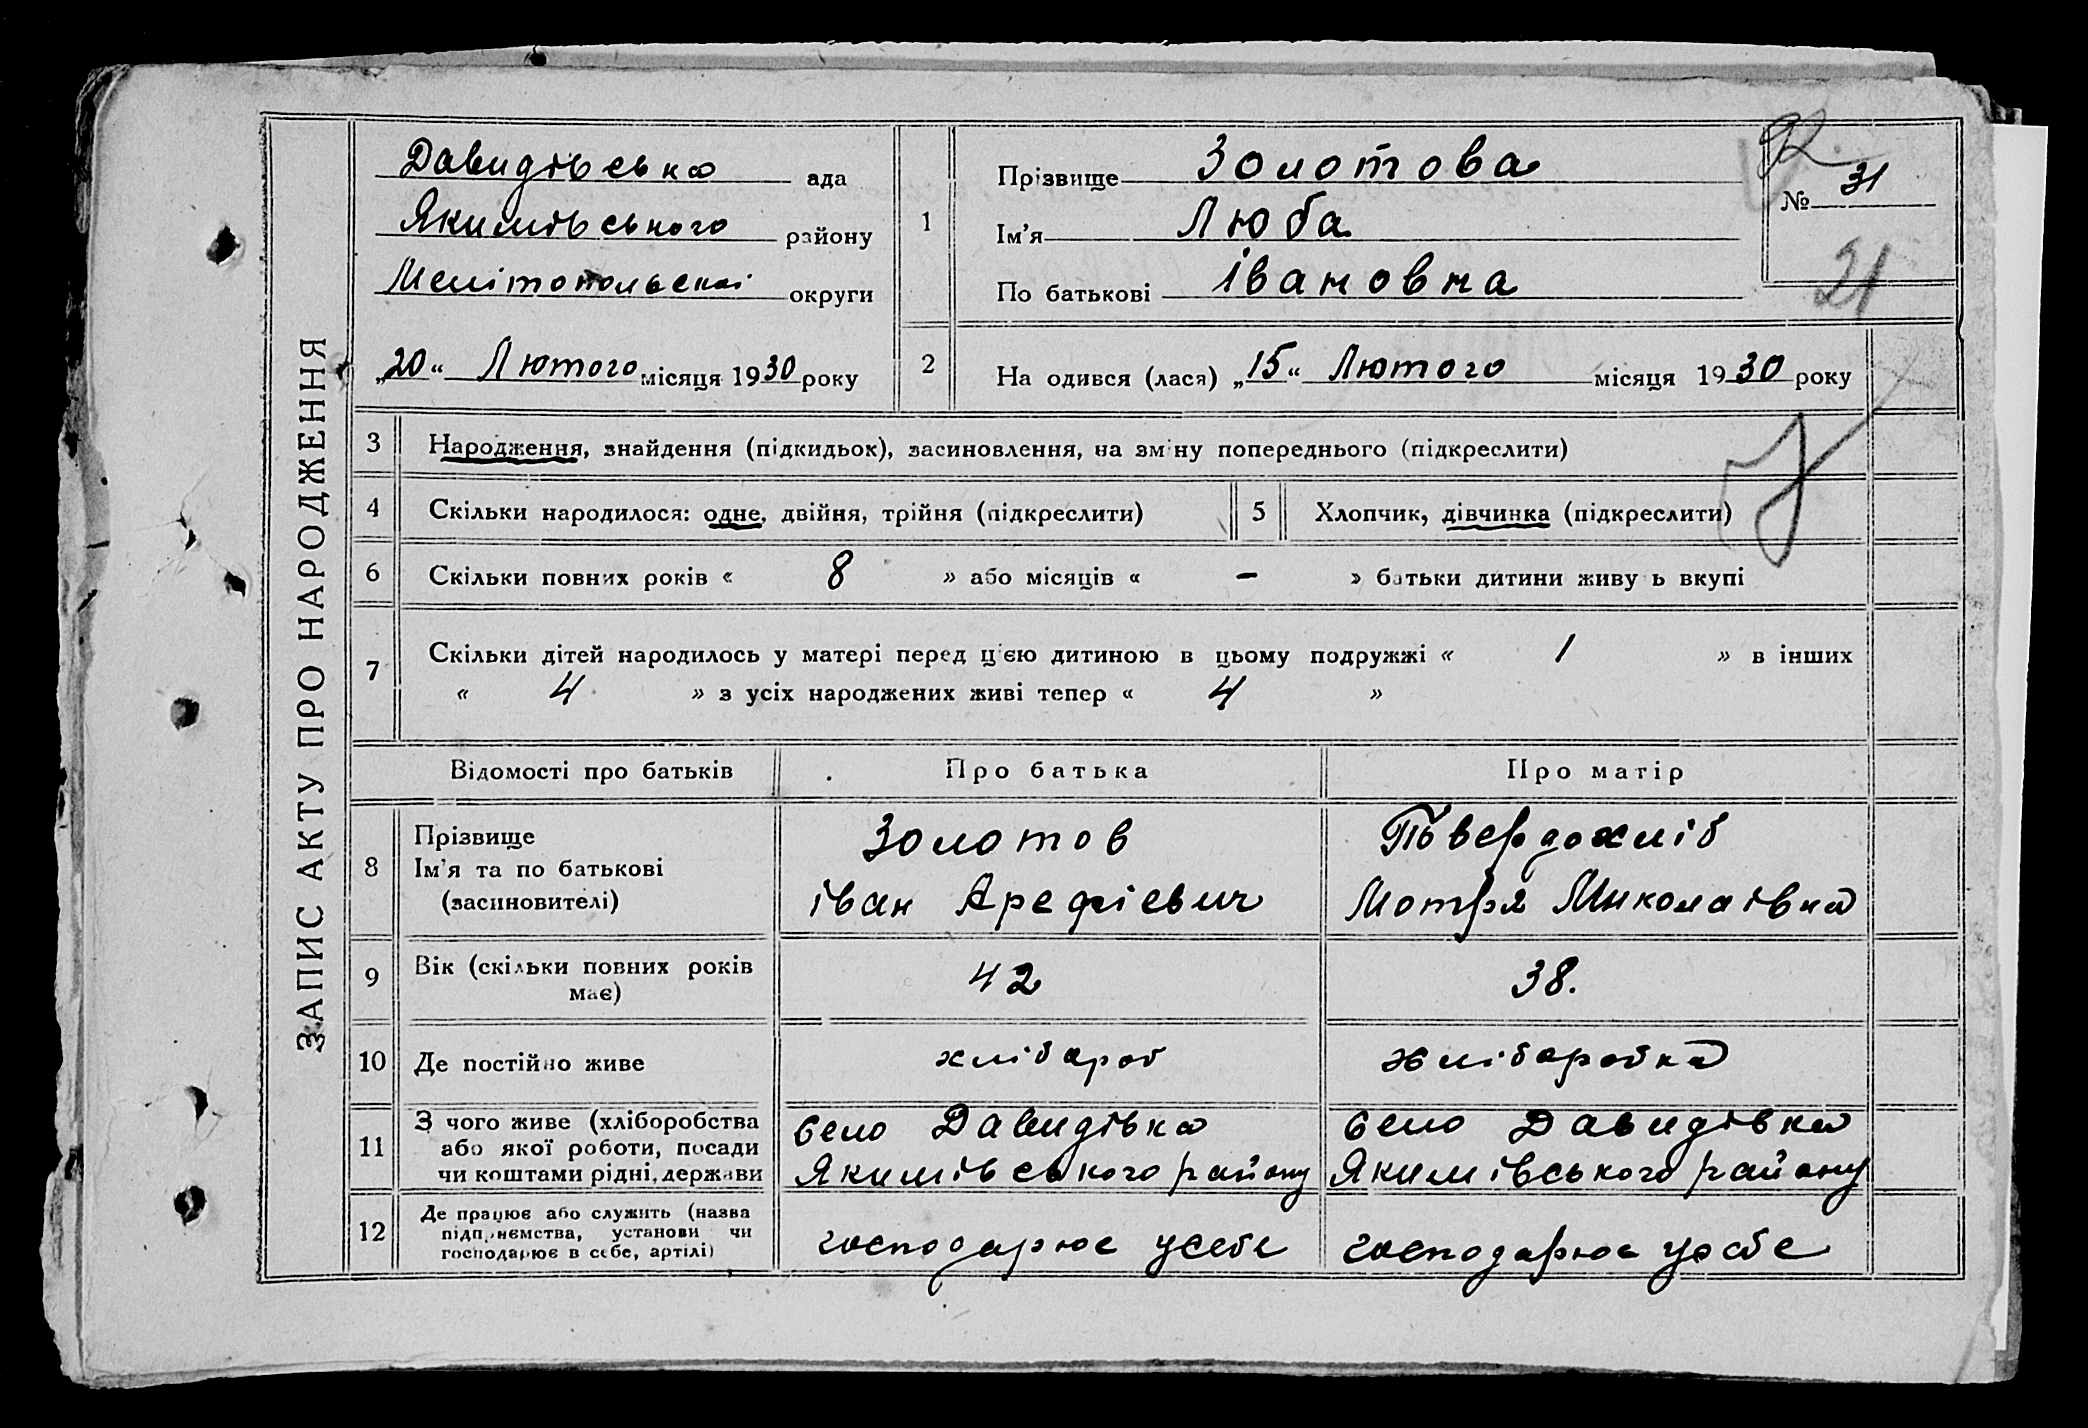 ЗАПИС АКТУ ПРО НАРОДЖЕННЯ
Давидівська ада
Якимівського району
Мелітопольскої округи
„20“ Лютого місяця 1930 року
1
Прізвище Золотова
Ім’я Люба
По батькові Івановна
№ 31
21
2
На одився (лася) „15“ Лютого місяця 1930 року
3 Народження, знайдення (підкидьок), засиновлення, на зміну попереднього (підкреслити)
4 Скільки народилося: одне, двійня, трійня (підкреслити)
5 Хлопчик, дівчинка (підкреслити)
6 Скільки повних років « 8 » або місяців « – » батьки дитини живу ь вкупі
7 Скільки дітей народилось у матері перед цією дитиною в цьому подружжі « 1 » в інших
« 4 » з усіх народжених живі тепер « 4 »
Відомості про батьків Про батька Про матір
8 Прізвище
Ім’я та по батькові
(засиновителі)
Золотов
Іван Арефієвич
Твердохліб
Мотря Миколаівна
9 Вік (скільки повних років
має)
42
38.
10 Де постійно живе
хлібароб
хлібаробка
11 З чого живе (хліборобства
або якої роботи, посади
чи коштами рідні, держави
Село Давидівка
Якимівського району
Село Давидівка
Якимівського району
12 Де працює або служить (назва
підприємства, установи чи
господарює в себе, артілі)
господарює усебе
господарює усебе